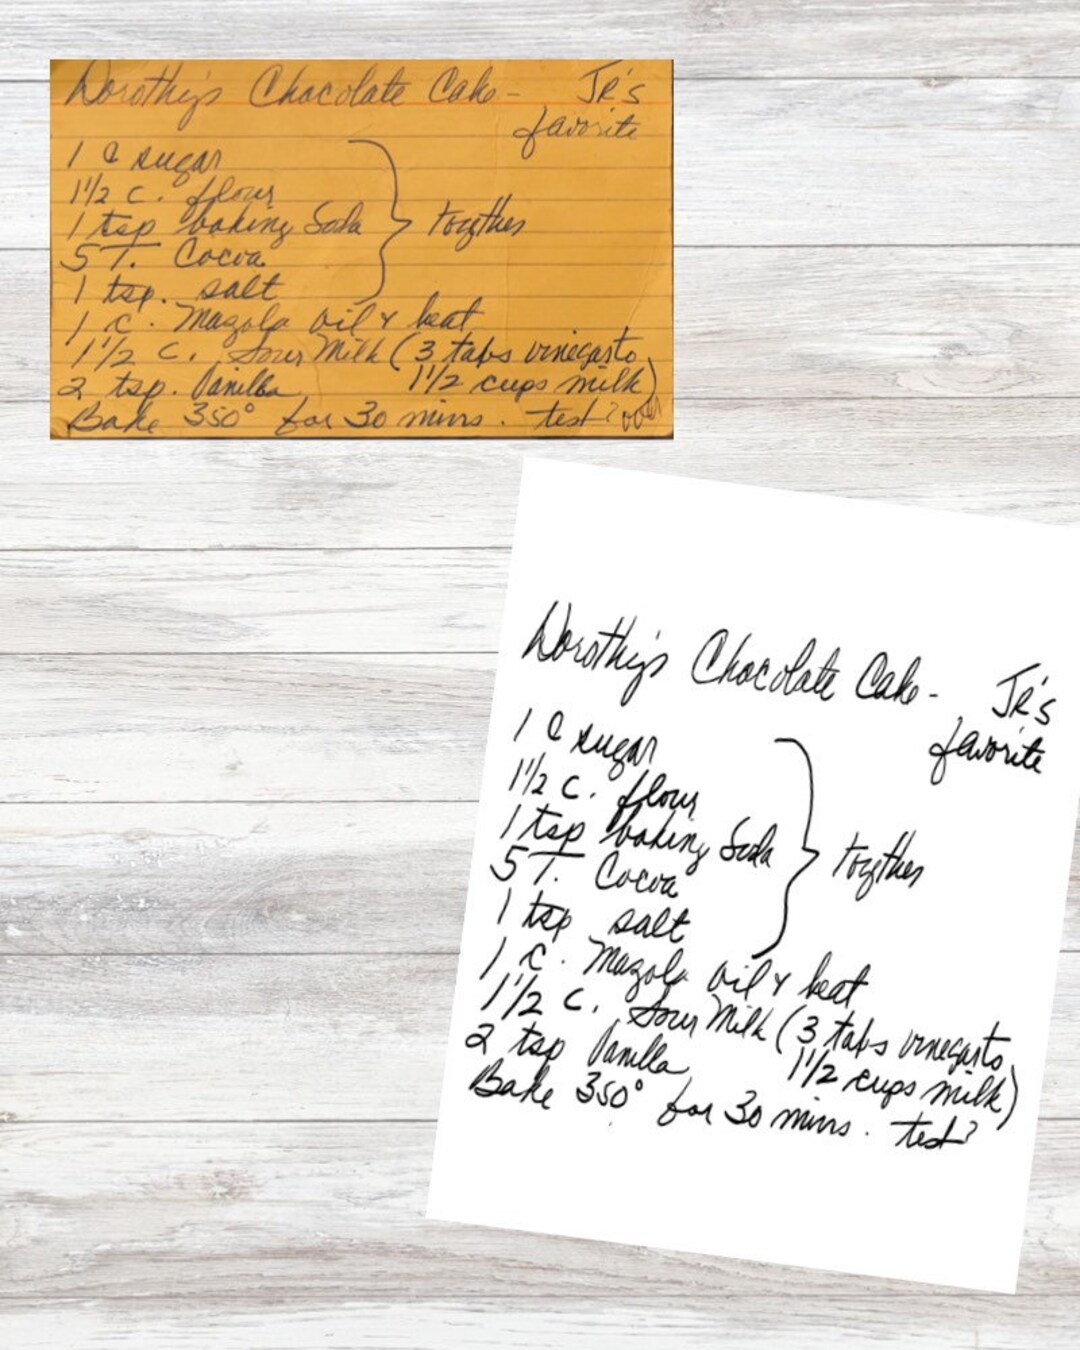 Dorothy's Chocolate Cake - JR's
favorite
1 C sugar
1 1/2 C. flour
1 tsp baking Soda
together
5 T. Cocoa
1 tsp. salt
1 C. Mazola oil & beat
1 1/2 C. Sour Milk (3 tabs vinegar to
2 tsp. Vanilla 1 1/2 cups milk)
Bake 350° for 30 mins. test? over
Dorothy's Chocolate Cake - JR's
favorite
1 C sugar
1 1/2 C. flour
1 tsp baking Soda
together
5 T. Cocoa
1 tsp salt
1 C. Mazola oil & beat
1 1/2 C. Sour Milk (3 tabs vinegar to
2 tsp Vanilla 1 1/2 cups milk)
Bake 350° for 30 mins. test?